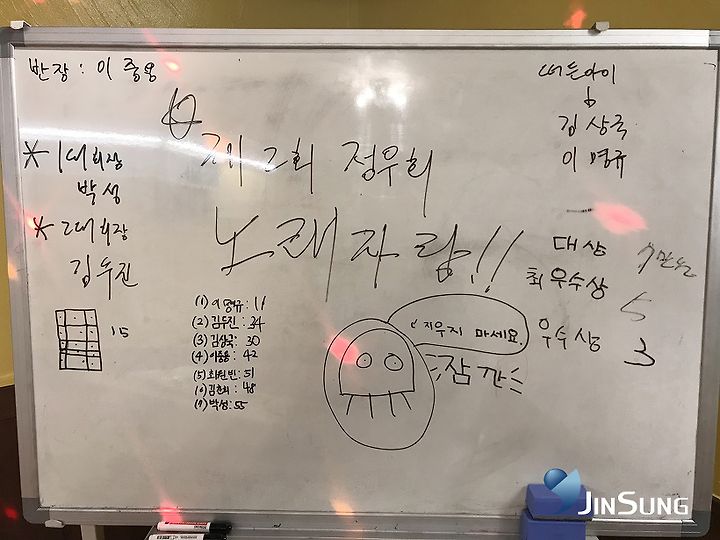 반장 : 이중용
* 1대회장
박성
* 2대회장
김두진
15
제 2회 정우회
노래자랑!!
떠든아이
김상국
이명규
대상
최우수상 5
우수상 3
(1) 이명규 : 11
(2) 김두진 : 34
(3) 김상국 : 30
(4) 이중용 : 42
(5) 최원빈 : 51
(6) 김춘희 : 48
(7) 박성 : 55
지우지 마세요.
잠깐
JINSUNG